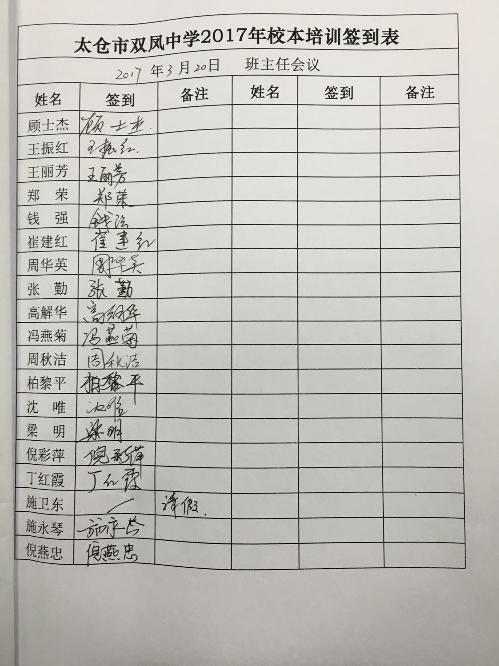 太仓市双凤中学2017年校本培训签到表
2017 年 3 月 20 日 班主任会议
姓名 签到 备注 姓名 签到 备注
顾士杰 顾士杰
王振红 王振红
王丽芳 王丽芳
郑 荣 郑荣
钱 强 钱强
崔建红 崔建红
周华英 周华英
张 勤 张勤
高解华 高解华
冯燕菊 冯燕菊
周秋洁 周秋洁
柏黎平 柏黎平
沈 唯 沈唯
梁 明 梁明
倪彩萍 倪彩萍
丁红霞 丁红霞
施卫东 请假
施永琴 施永琴
倪燕忠 倪燕忠